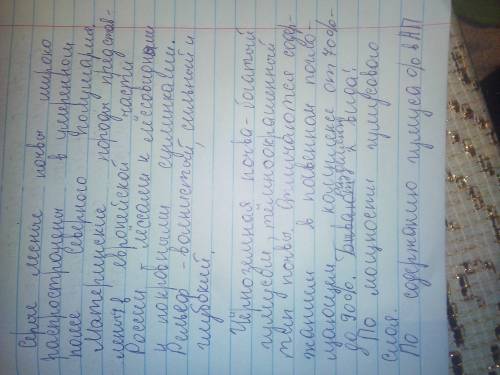 Серые лесные почвы широко
распространены в умеренном
поясе Северного полушария.
Материнские породы представ-
лены в европейской части
России - лессами и лессовидными
и покровными суглинками.
Рельеф - волнистый, сильный и
глубокий.
Чернозёмная почва - богатый
гумусом, тёмноокрашенный
тип почвы. Отличаются содер-
жанием в почвенном погло-
щающем комплексе от 70%-
до 90%. Бывают 2 вида:
По мощности гумусового
слоя.
По содержанию гумуса % в АП